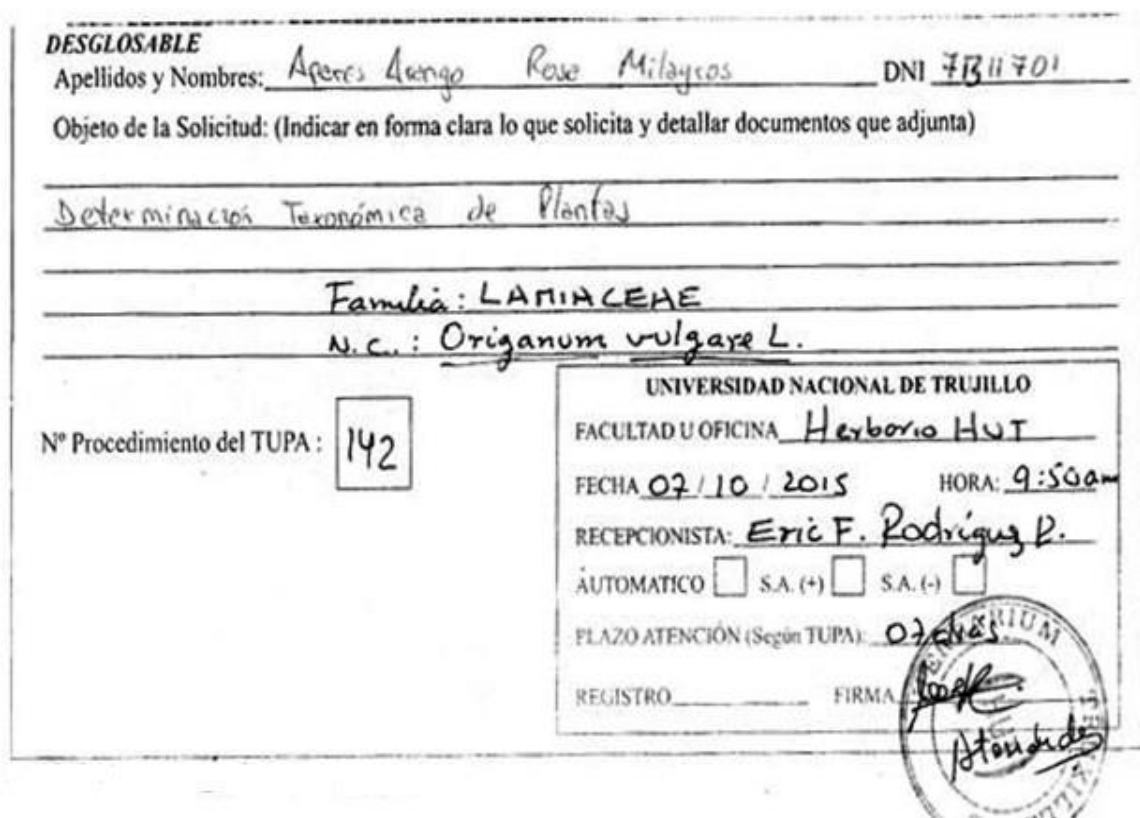 DESGLOSABLE
Apellidos y Nombres: Rose Milagros DNI
Objeto de la Solicitud: (Indicar en forma clara lo que solicita y detallar documentos que adjunta)
Determinación Taxonómica de Plantas
Familia: LAMIACEAE
N.C.: Origanum vulgare L.
Nº Procedimiento del TUPA: 142
UNIVERSIDAD NACIONAL DE TRUJILLO
FACULTAD U OFICINA Herbario HUT
FECHA 07/10/2015 HORA: 9:50am
RECEPCIONISTA: Eric F. Rodríguez P.
AUTOMATICO S.A. (+) S.A. (-)
PLAZO ATENCIÓN (Según TUPA): 07 dias
REGISTRO FIRMA
Atendido